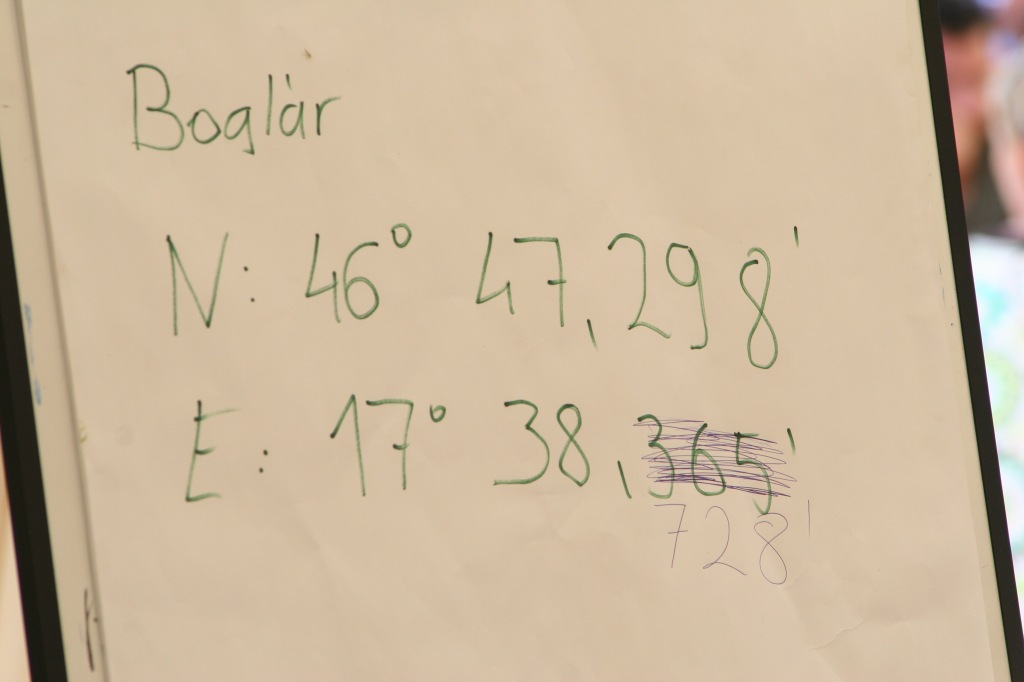 Boglár
N: 46° 47,298'
E: 17° 38,365'
728'